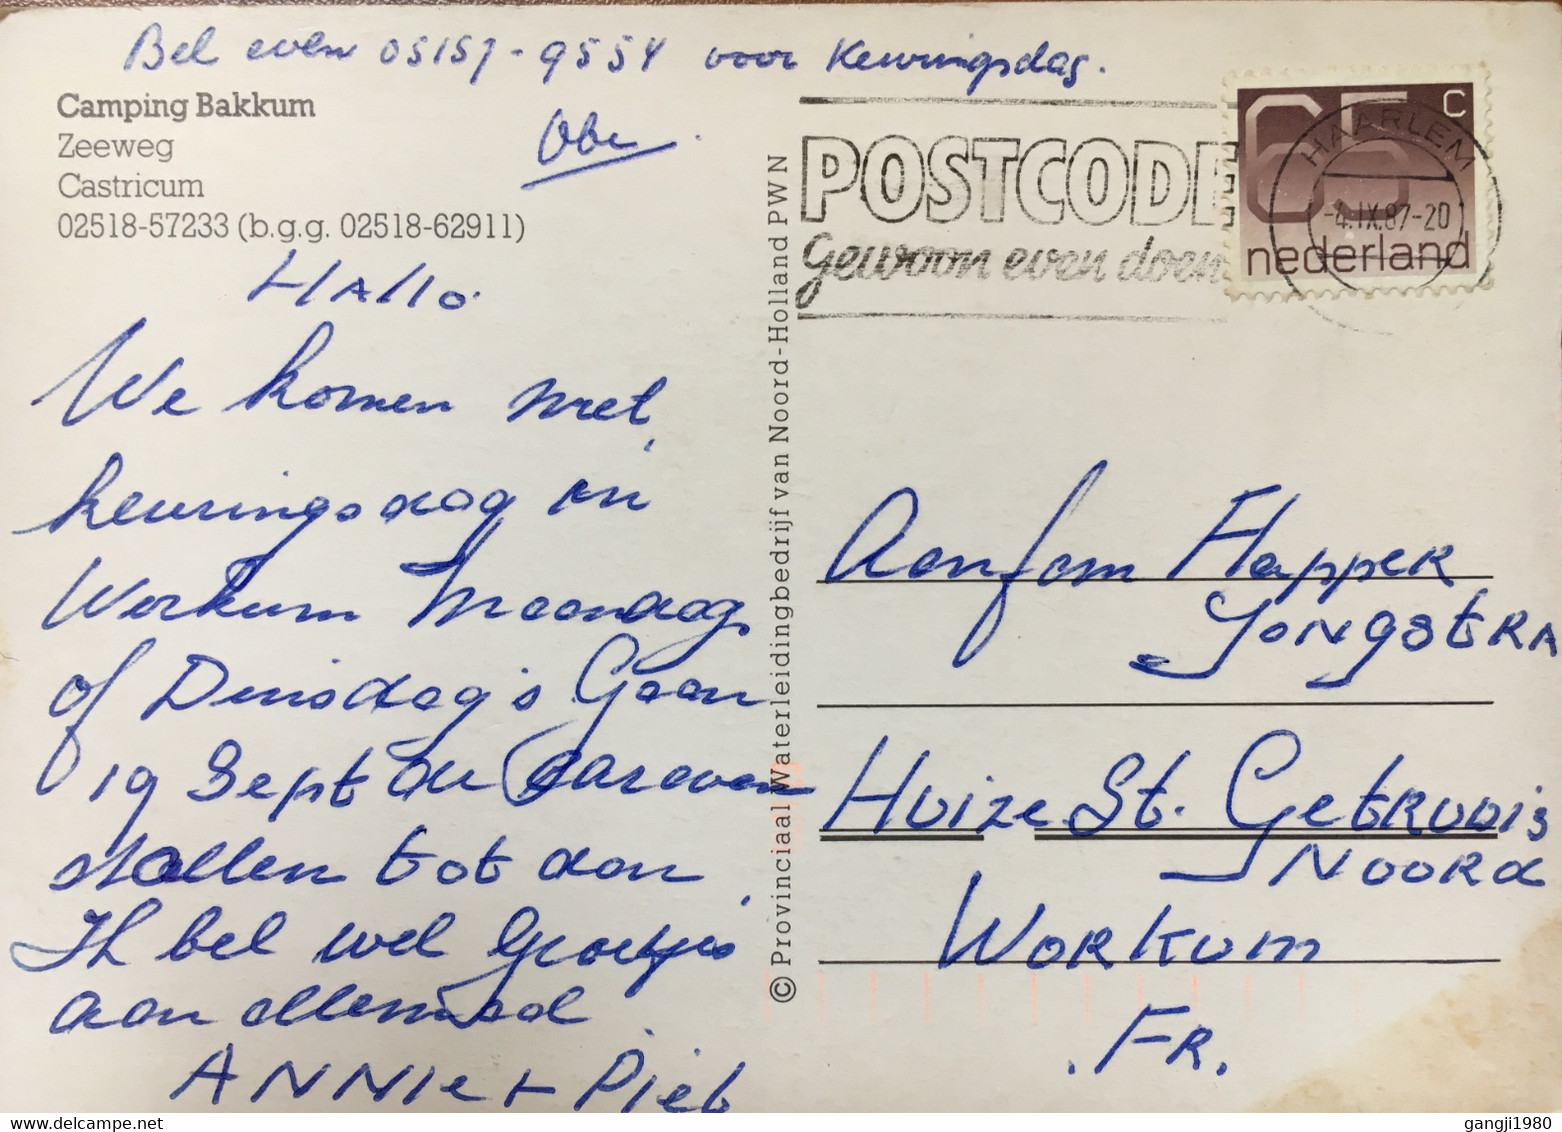 Bel even 05157-9554 voor Keuringsdag.
Obe
Camping Bakkum
Zeeweg
Castricum
02518-57233 (b.g.g. 02518-62911)
Hallo
We komen met
keuringsdag in
Workum Maandag
of Dinsdag's Gaan
19 Sept de caravan
stallen tot dan,
Ik bel wel Groetjes
aan allemaal.
ANNIE + Piet
© Provinciaal Waterleidingbedrijf van Noord-Holland PWN
POSTCODE
gewoon even doen
65 c
nederland
HAARLEM
-4.IX.87-20
Aan fam Flapper
JONgstRA
Huize St. GetRudis
NOORd
WORKUM
FR.
gangji1980